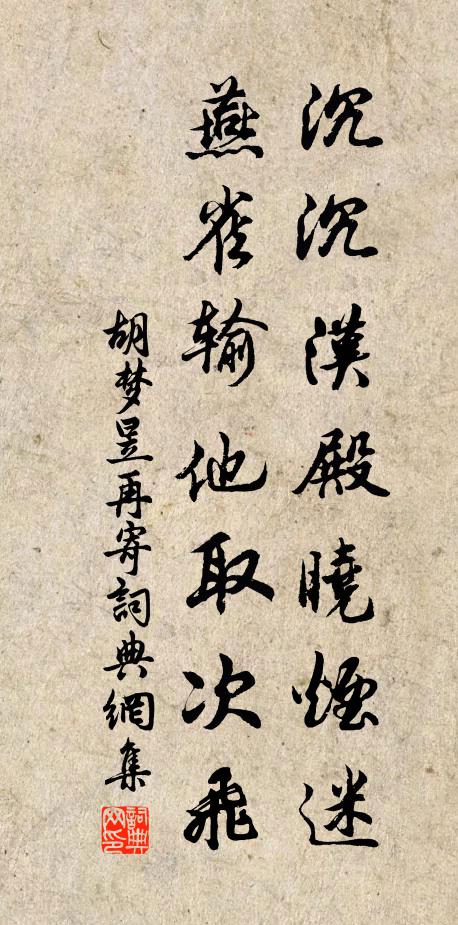 沉沉漢殿曉煙迷
燕雀输他取次飛
胡梦昱再寄詞典網集
詞典网印